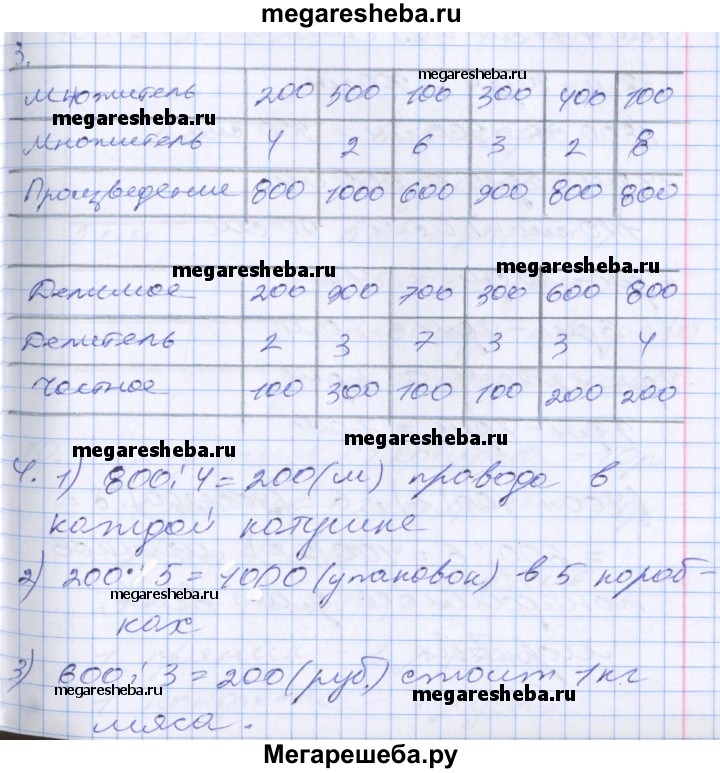 megaresheba.ru
3.
megaresheba.ru
Множитель 200 500 100 300 400 100
megaresheba.ru
Множитель 4 2 6 3 2 8
Произведение 800 1000 600 900 800 800
megaresheba.ru megaresheba.ru
Делимое 200 900 700 300 600 800
Делитель 2 3 7 3 3 4
Частное 100 300 100 100 200 200
megaresheba.ru megaresheba.ru
4. 1) 800:4=200(м) провода в
каждой катушке
2) 200·5=1000(упаковок) в 5 короб-
megaresheba.ru
ках
3) 600:3=200(руб.) стоит 1кг
megaresheba.ru megaresheba.ru
мяса.
Мегарешеба.ру